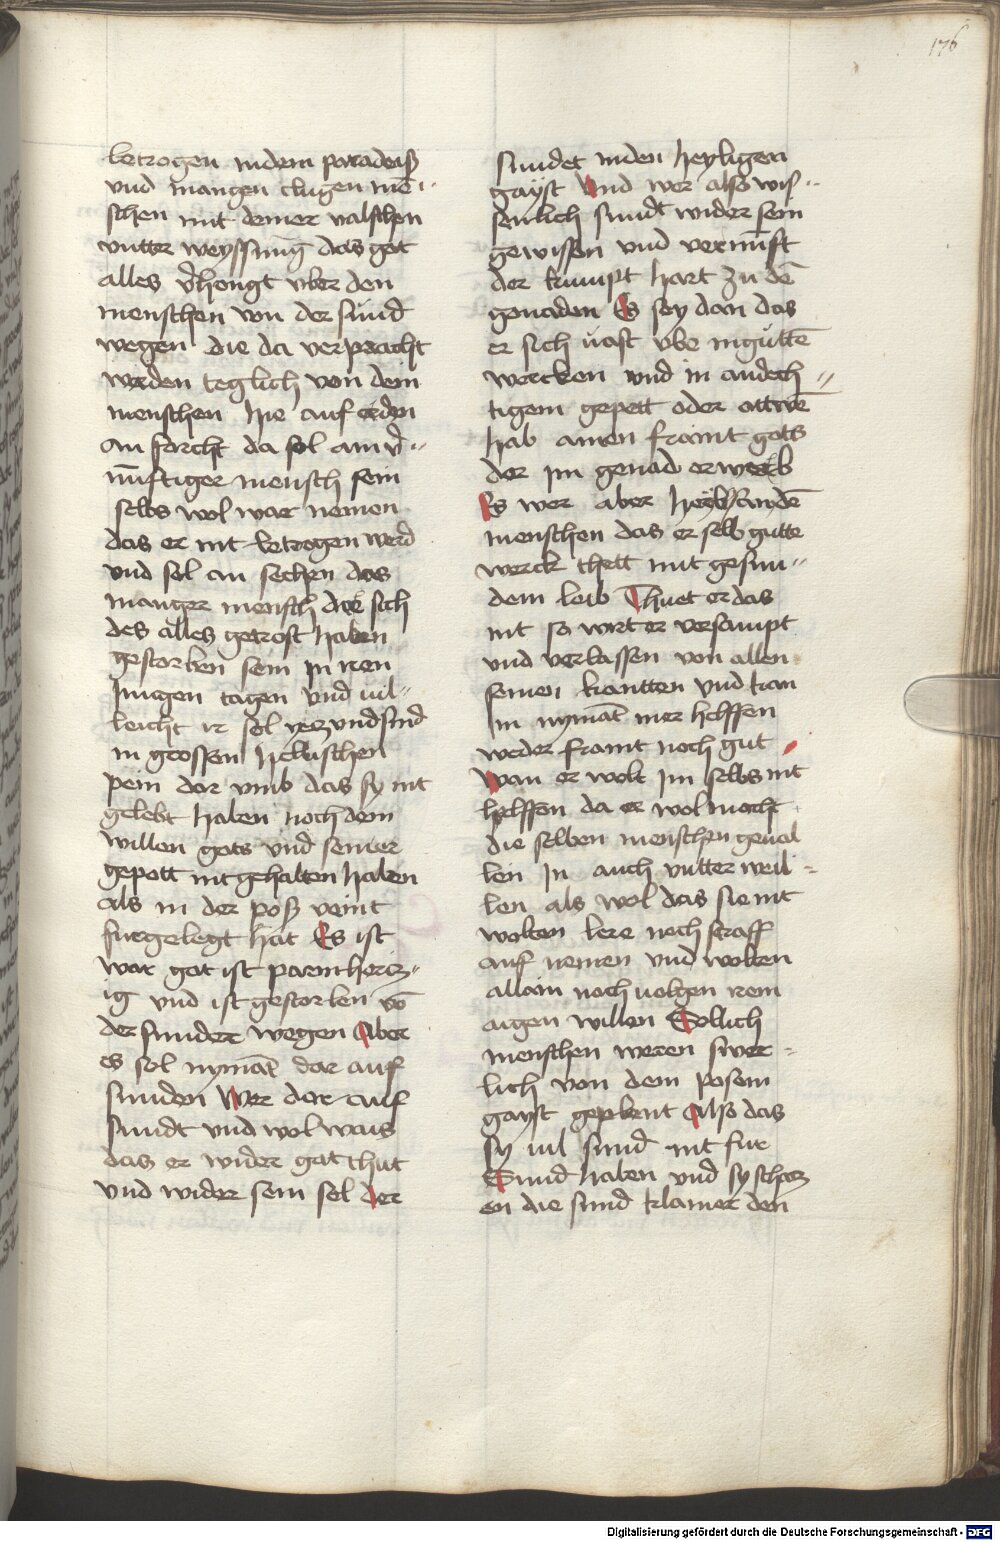 176
betrogen indem paradeiß
vnd mangen clugen men¯
schen mit deiner valschen
vntter weyssung das got
alles v̄hengt vber den
menschen von der sund
wegen die da verpracht
werden teglich von dem
menschen hie auf erden
an forcht da sol ain v̄
nūftiger mensch sein
selbs wol war nemen
das er nit betrogen werd
vnd sol an sechen das
manger mensch die sich
des alles getrost haben
gestorben sein in iren
Jungen tagen vnd vil
leicht ir sol yeczund sind
in grossen hellischen
pein dar vmb das sy nit
gelebt haben noch dem
willen gots vnd seiner
gepott nit gehalten haben
als in der poß veint
furgelegt hat Es ist
war got ist parmhercz
ig vnd ist gestorben vō
der sunder wegen Aber
es sol nymāt dar auf
sunden Wer dar auf
sundt vnd wol wais
das er wider got thut
vnd wider sein sel der
sundet inden heyligen
gayst Vnd wer also wis
senlich sundt wider sein
gewissen vnd vernūft
der kumpt hart zu dē
genaden Es sey dan das
er sich vast vbe inguttē
wercken vnd in andech
tigem gepett oder
hab ainen fraint gots
der im genad erwerb
Es wer aber
menschen das er selb gutte
werck thett mit gesun
dem leib Thuet er das
nit so wirt er versaumpt
vnd verlassen von allen
seinen kantten vnd kan
Im nymāt mer helffen
weder fraint noch gut
Wan er wolt im selbs nit
helffen da er wol mocht
die selben menschen geual
len In auch vntter weil
len als wol das sie nit
wolten lere noch straff
auf nemen vnd wolten
allain noch uolgen irem
aigen willen Sollich
menschen weren swer
lich von dem posem
gayst geplent Also das
sy vil sund nit fur
Sund haben vnd sy schecz
en die sund klainer den
Digitalisierung gefördert durch die Deutsche Forschungsgemeinschaft - DFG